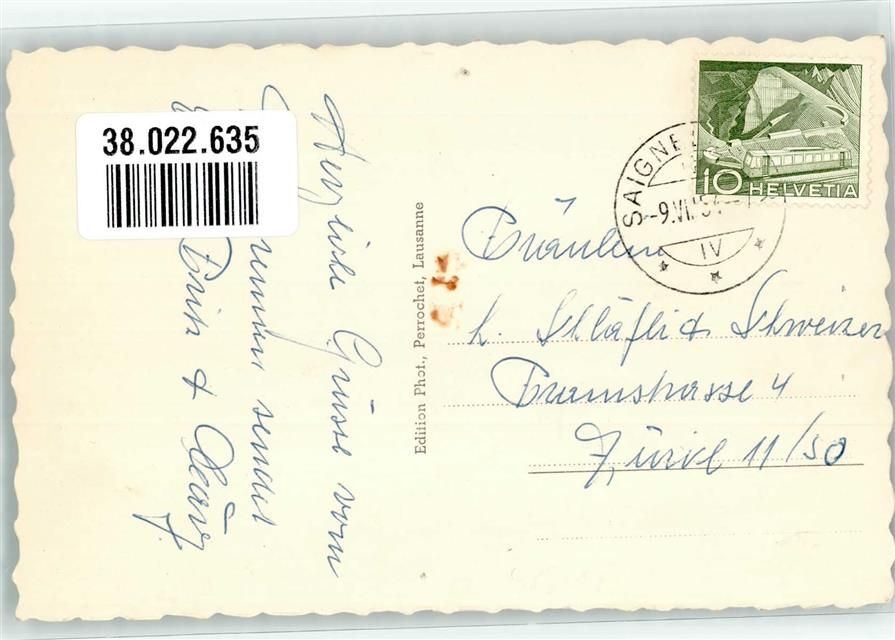 38.022.635
Herzliche Grüsse vom
sendet
Fritz &
Edition Phot., Perrochet, Lausanne
SAIGNE
-9.VII.54
IV
10 HELVETIA
Fräulein
H. Schläfli & Schweizer
Bramstrasse 4
Zürich 11/50